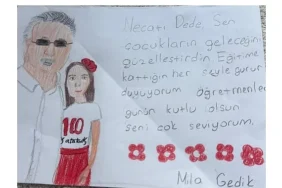 Necati Dede, Sen
çocukların geleceğini
güzelleştirdin Eğitime
kattığın her şeyle gurur
duyuyorum Öğretmenler
günün kutlu olsun
seni çok seviyorum.
Mila Gedik
100